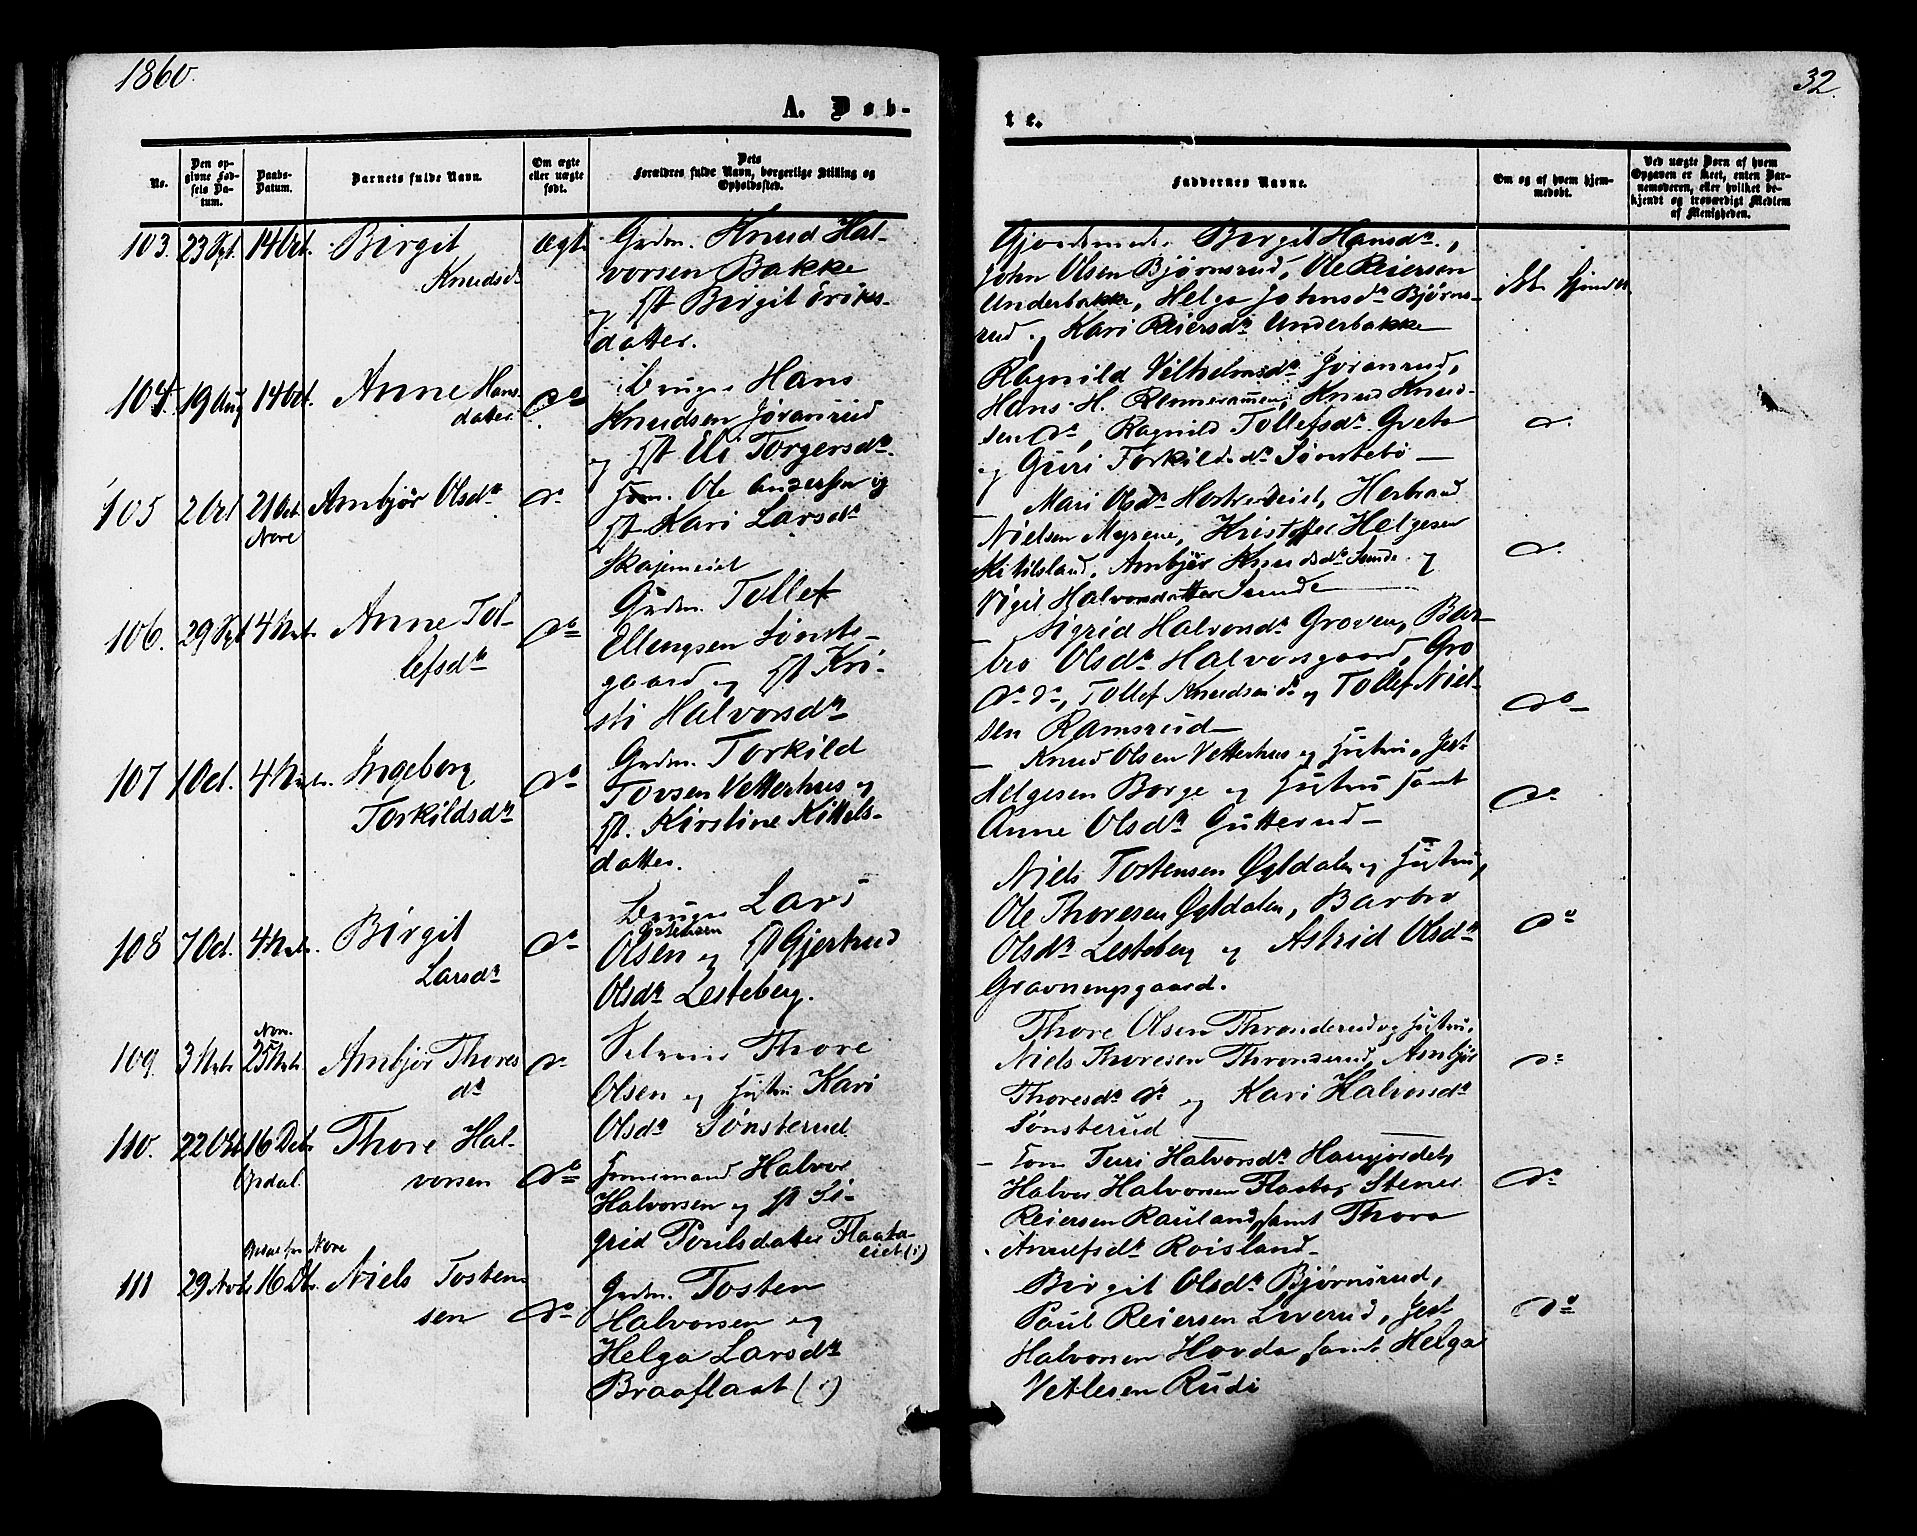 1860.
32.
A. Døb-
te.
No.
Den op-
givne Fød-
sels Da-
tum.
Daabs-
Datum.
Barnets fulde Navn.
Om ægte
eller uægte
født.
Dets
Forældres fulde Navn, borgerlige Stilling og
Opholdssted.
Faddernes Navne.
Om og af hvem hjem-
medøbt.
Ved uægte Børn af hvem
Opgaven er skeet, enten Bar-
nemoderen, eller hvilket be-
kjendt og troværdigt Medlem
af Menigheden.
103. 23 Spt. 14 Oct. Birgit
Knudsd.
ægt
Grdm. Knud Hal-
vorsen Bakke
og Hst Birgit Eriks-
datter.
Birgit Hansdr.,
John Olsen Bjørnsrud, Ole Reiersen
Underbakke, Helga Johnsdr Bjørns-
rud og Kari Reiersdr. Underbakke
ikke hjemdt.
104. 19 Aug 14 Oct. Anne Hans-
datter
do
Bruger Hans
Knudsen Joranrud
og Hst Eli Torgersdr.
Ragnild Vilhelmsdr Joranrud,
Hans H. Knud Knud-
sen do, Ragnild Tollefsdr.
og Guri Torkildsdr Sønstebö —
do
105 2 Oct 21 Oct.
Nore
Ambjør Olsdr
do
Ole Andersen og
Hst Kari Larsdr
Skajemeiet
Mari Olsdr Herbrand
Nielsen Myrene, Kristoffer Helgesen
Kitilsland, Ambjør Knudsdr Sunde og
Vigil Halvorsdatter Sunde
do
106. 29 Spt 4 Nvb. Anne Tol-
lefsdr
do
Grdm. Tollef
Ellengsen Sønste-
gaard og Hst Kri-
sti Halvorsdr
Sigrid Halvorsdr Groven, Bar-
bro Olsdr Halvorsgaard, Gro
do do, Tollef Knudsen do og Tollef Niel-
sen Ramsrud —
do
107 1 Oct. 4 Nvbr. Ingeborg
Torkildsdr
do
Grdm. Torkild
Tovsen Vetterhus og
Hst. Kirstine Kittels-
datter.
Knud Olsen Vetterhus og Hustru,
Helgesen Borge og Hustru samt
Anne Olsdr Gutterud —
do
108 7 Oct. 4 Nvbr. Birgit
Larsdr
do
Bruger Lars
Olsen og Hst Gjertrud
Olsdr Lesteberg.
Niels Tostensen Øgldalen og Hustru,
Ole Thoresen Øgldalen, Barbro
Olsdr Lesteberg og Astrid Olsdr
Gravningsgaard.
do
109. 3 Nvb. Nore
25 Nvb. Ambjør Thores
dr
do
Thore
Olsen og Hustru Kari
Olsdr Sønsterud
Thore Olsen Thronderud og Hustru,
Niels Thoresen Thronderud, Ambjør
Thoresdr do og Kari Halvorsdr
Sønsterud
do
110. 22 Oct 16 Dcb.
Opdal.
Thore Hal-
vorsen
do
Halvor
Halvorsen og Hst Si-
grid Poulsdatter Flaata-
eiet (:)
Turi Halvorsdr Haugjordet,
Halvor Halvorsen Flaata, Stener
Reiersen Rauland, samt Thora
Roisland —
do
Nore
111 29 Nvb. 16 Db. Niels Tosten-
sen
do
Grdm. Tosten
Halvorsen og
Helga Larsdr
Braaflaat (:)
Birgit Olsdr Bjørnsrud,
Paul Reiersen Liverud,
Halvorsen Hovda samt Helga
Vetlesen Rudi
do